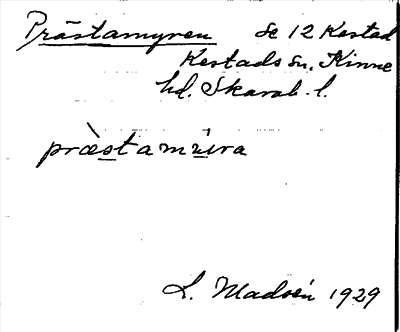 Prästamyren Se 12 Kestad
Kestads sn. Kinne
hd. Skarab. l.
præ̀stamúira
L. Madsén 1929